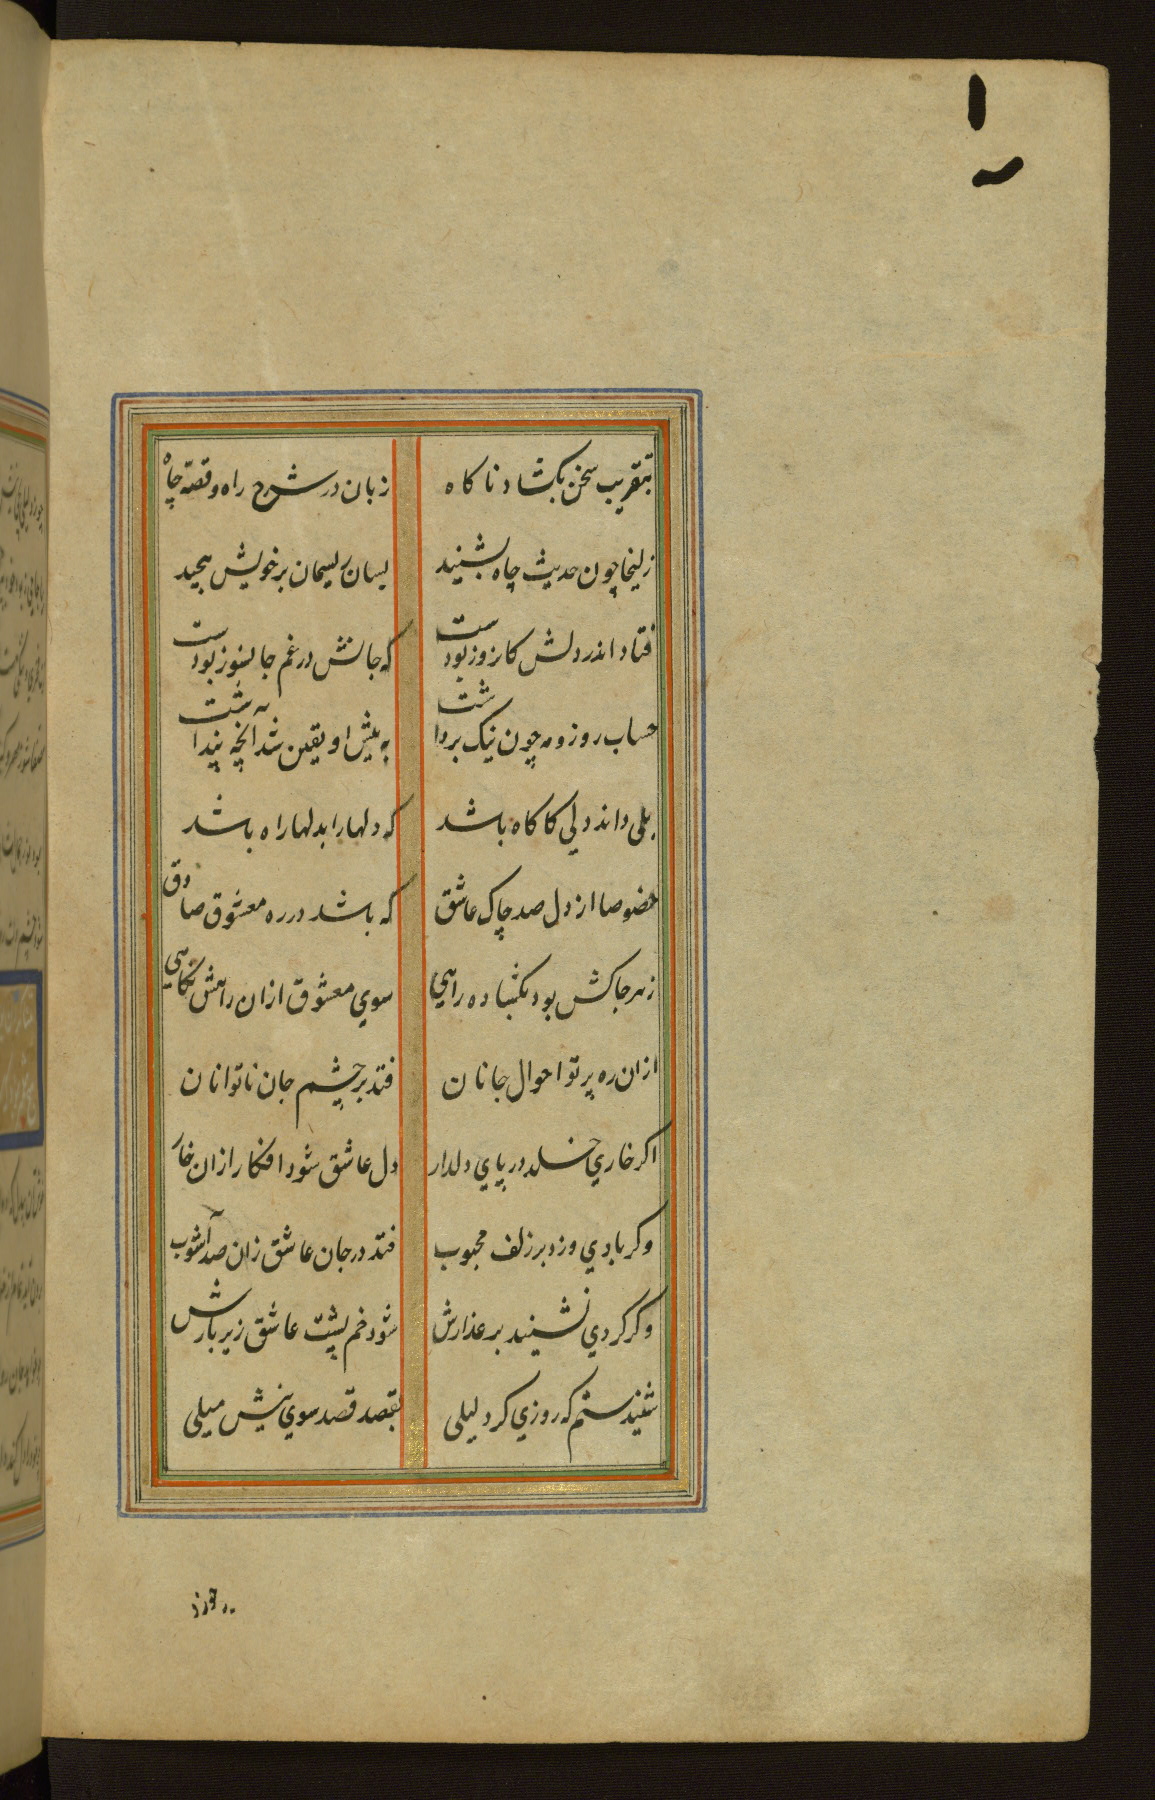 بتقریب سخن بکشاد ناکاه زبان در شرح راه و قصه چاه
زلیخا چون حدیث چاه بشنید بسان ریسمان بر خویش پیچید
فتاد اندر دلش کان روز بودست که جانش در غم جانسوز بودست
حساب روز و مه چون نیک برداشت به پیش او یقین شد آنچه پنداشت
بلی داند دلی کاکاه باشد که دلها را بدلها راه باشد
خصوصا از دل صد چاک عاشق که باشد در ره معشوق صادق
ز هر چاکش بود بکشاده راهي سوي معشوق ازان راهش نکاهي
ازان ره پرتو احوال جانان فتد بر چشم جان ناتوانان
اکر خاري خلد در پاي دلدار دل عاشق شود افکار ازان خار
وکر بادي وزد بر زلف محبوب فتد در جان عاشق زان صد آشوب
وکر کردي نشیند بر عذارش شود خم پشت عاشق زیر بارش
شنیدستم که روزي کرد لیلی بقصد قصد سوي نیش میلی
چو زد